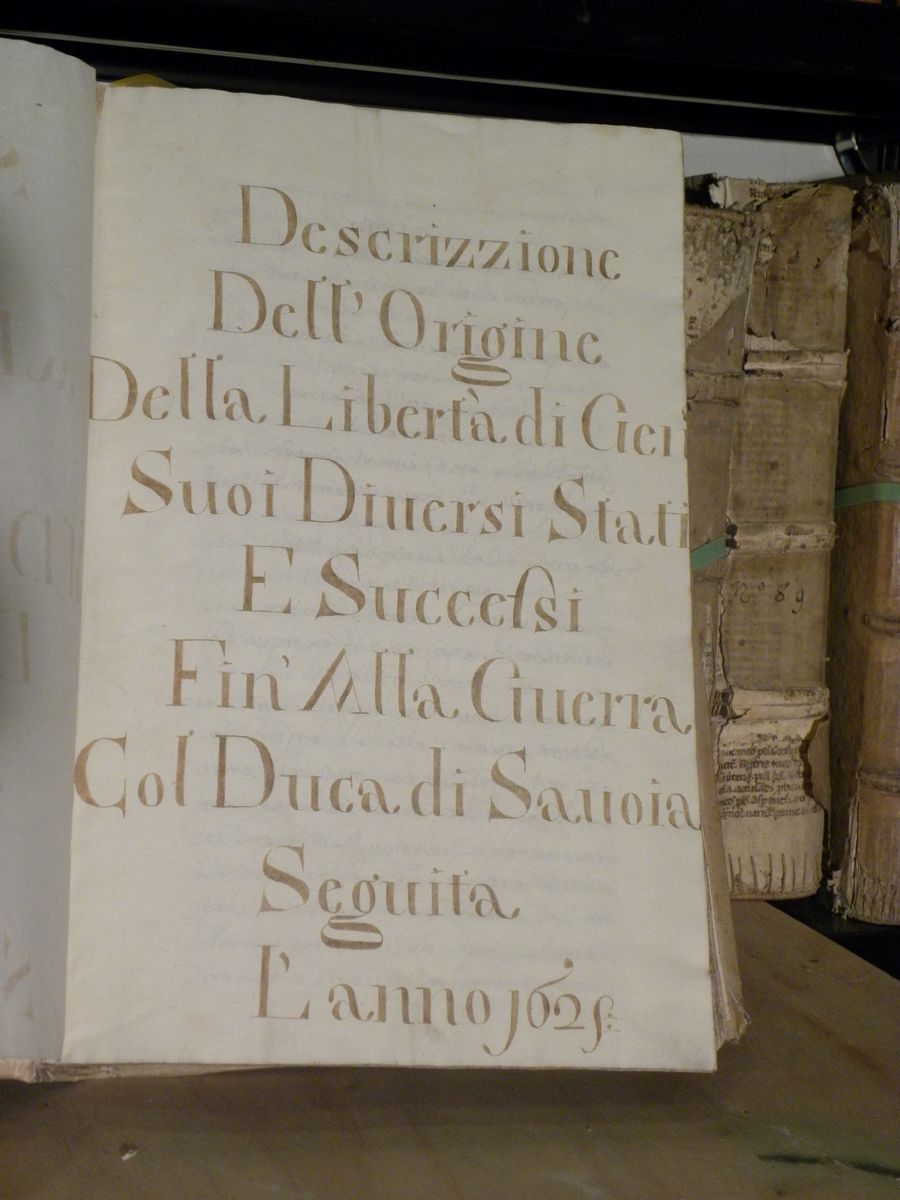 Descrizzione
Dell' Origine
Della Libertà di Gen
Suoi Diuersi Stati
E Succeſsi
Fin' Alla Guerra
Col Duca di Sauoia
Seguita
L' anno 1625:
No 89